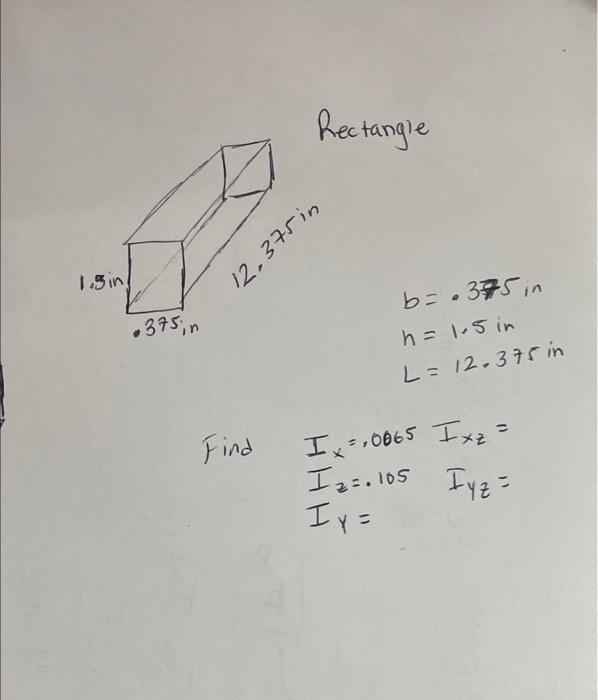 Rectangle
1.5in
12.375in
.375in
b = .375 in
h = 1.5 in
L = 12.375 in
Find Ix = .0065 Ixz =
Iz = .105 Iyz =
IY =